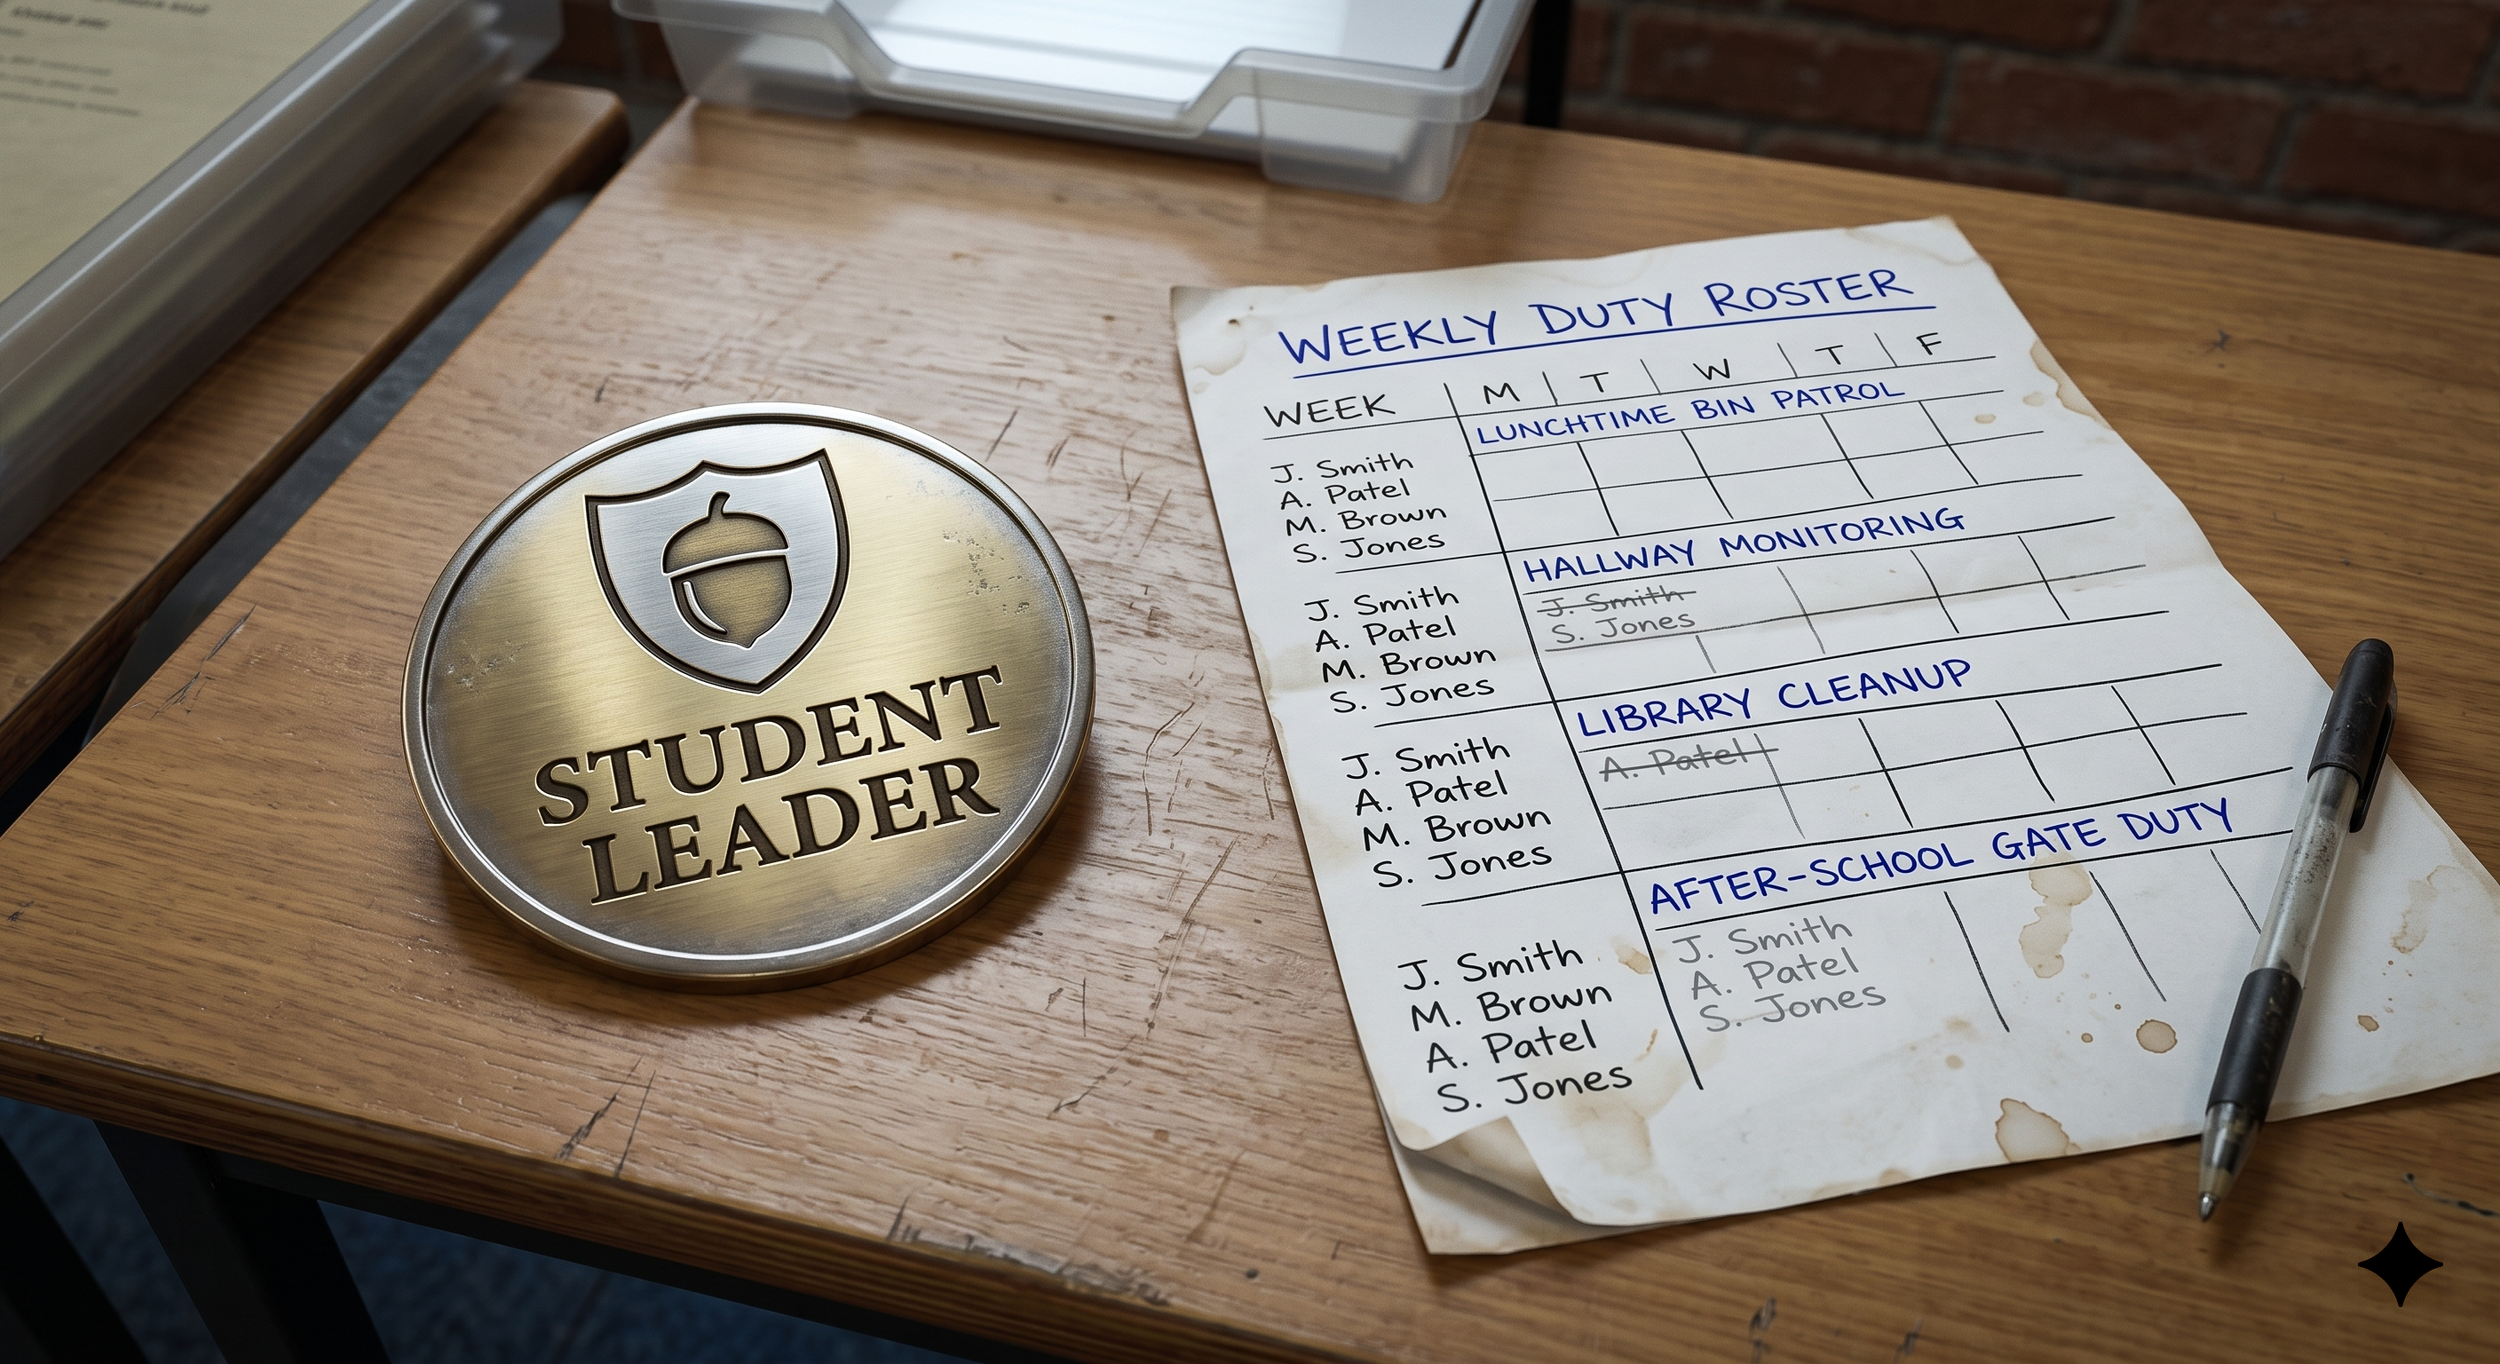 STUDENT
LEADER
WEEKLY DUTY ROSTER
WEEK M T W T F
LUNCHTIME BIN PATROL
J. Smith
A. Patel
M. Brown
S. Jones
HALLWAY MONITORING
J. Smith
A. Patel
M. Brown
S. Jones
J. Smith
S. Jones
LIBRARY CLEANUP
J. Smith
A. Patel
M. Brown
S. Jones
A. Patel
AFTER-SCHOOL GATE DUTY
J. Smith
M. Brown
A. Patel
S. Jones
J. Smith
A. Patel
S. Jones